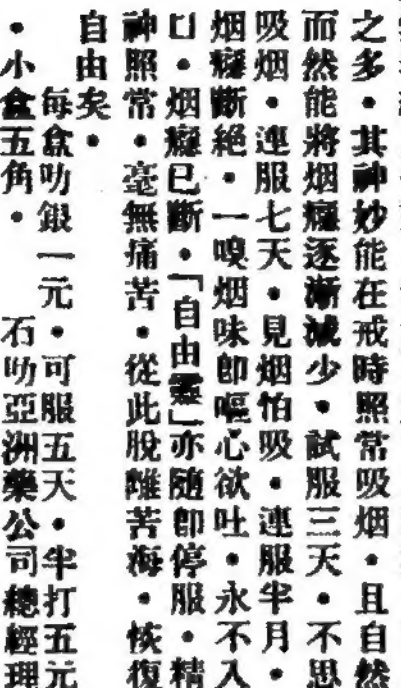 之多。其神妙能在戒時照常吸烟。且自然
而然能將烟癮逐漸減少。試服三天。不思
吸烟。連服七天。見烟怕吸。連服半月。
烟癮斷絕。一嗅烟味卽嘔心欲吐。永不入
口。烟癮已斷。「自由靈」亦隨卽停服。精
神照常。毫無痛苦。從此脫離苦海。恢復
自由矣。
每盒叻銀一元。可服五天。半打五元
。小盒五角。 石叻亞洲藥公司總經理